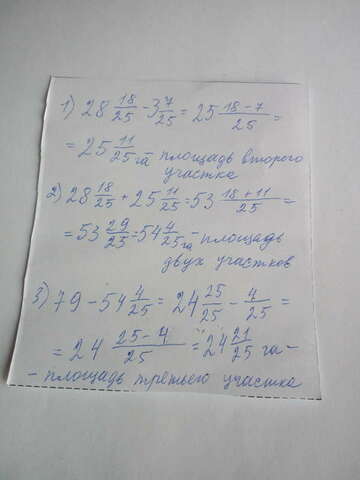 1) 28 18/25 - 3 7/25 = 25 18-7/25 =
= 25 11/25 га - площадь второго
участка
2) 28 18/25 + 25 11/25 = 53 18+11/25 =
= 53 29/25 = 54 4/25 га - площадь
двух участков
3) 79 - 54 4/25 = 24 25/25 - 4/25 =
= 24 25-4/25 = 24 21/25 га -
- площадь третьего участка